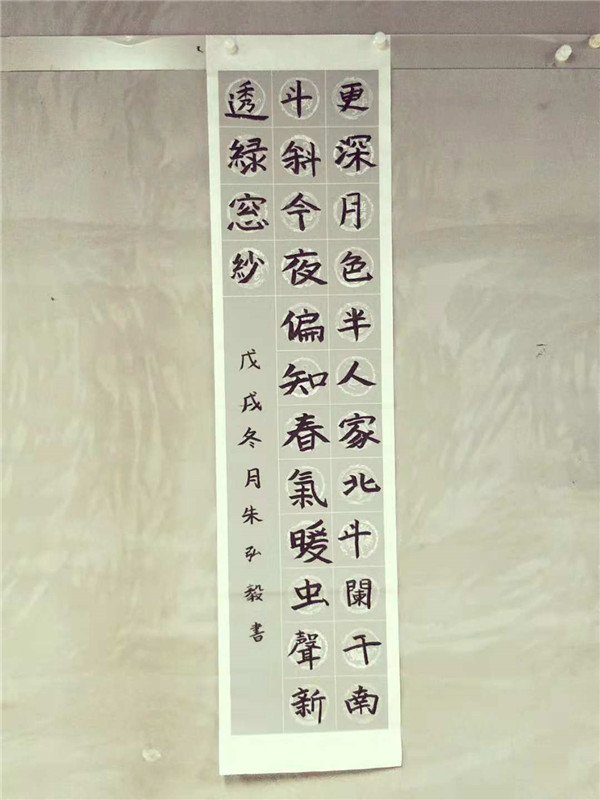 更深月色半人家北斗闌干南
斗斜今夜偏知春氣暖虫聲新
透緑窓紗
戊戌冬月朱弘毅書